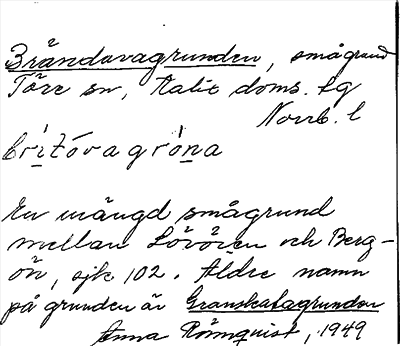 Brändavagrunden, smågrund
Töre sn, Kalix doms. tg
Norrb. l
En mängd smågrund
mellan Lövören och Berg-
ön, sjk 102. Äldre namn
på grunden är Granskatagrunden
Anna Römquist, 1949